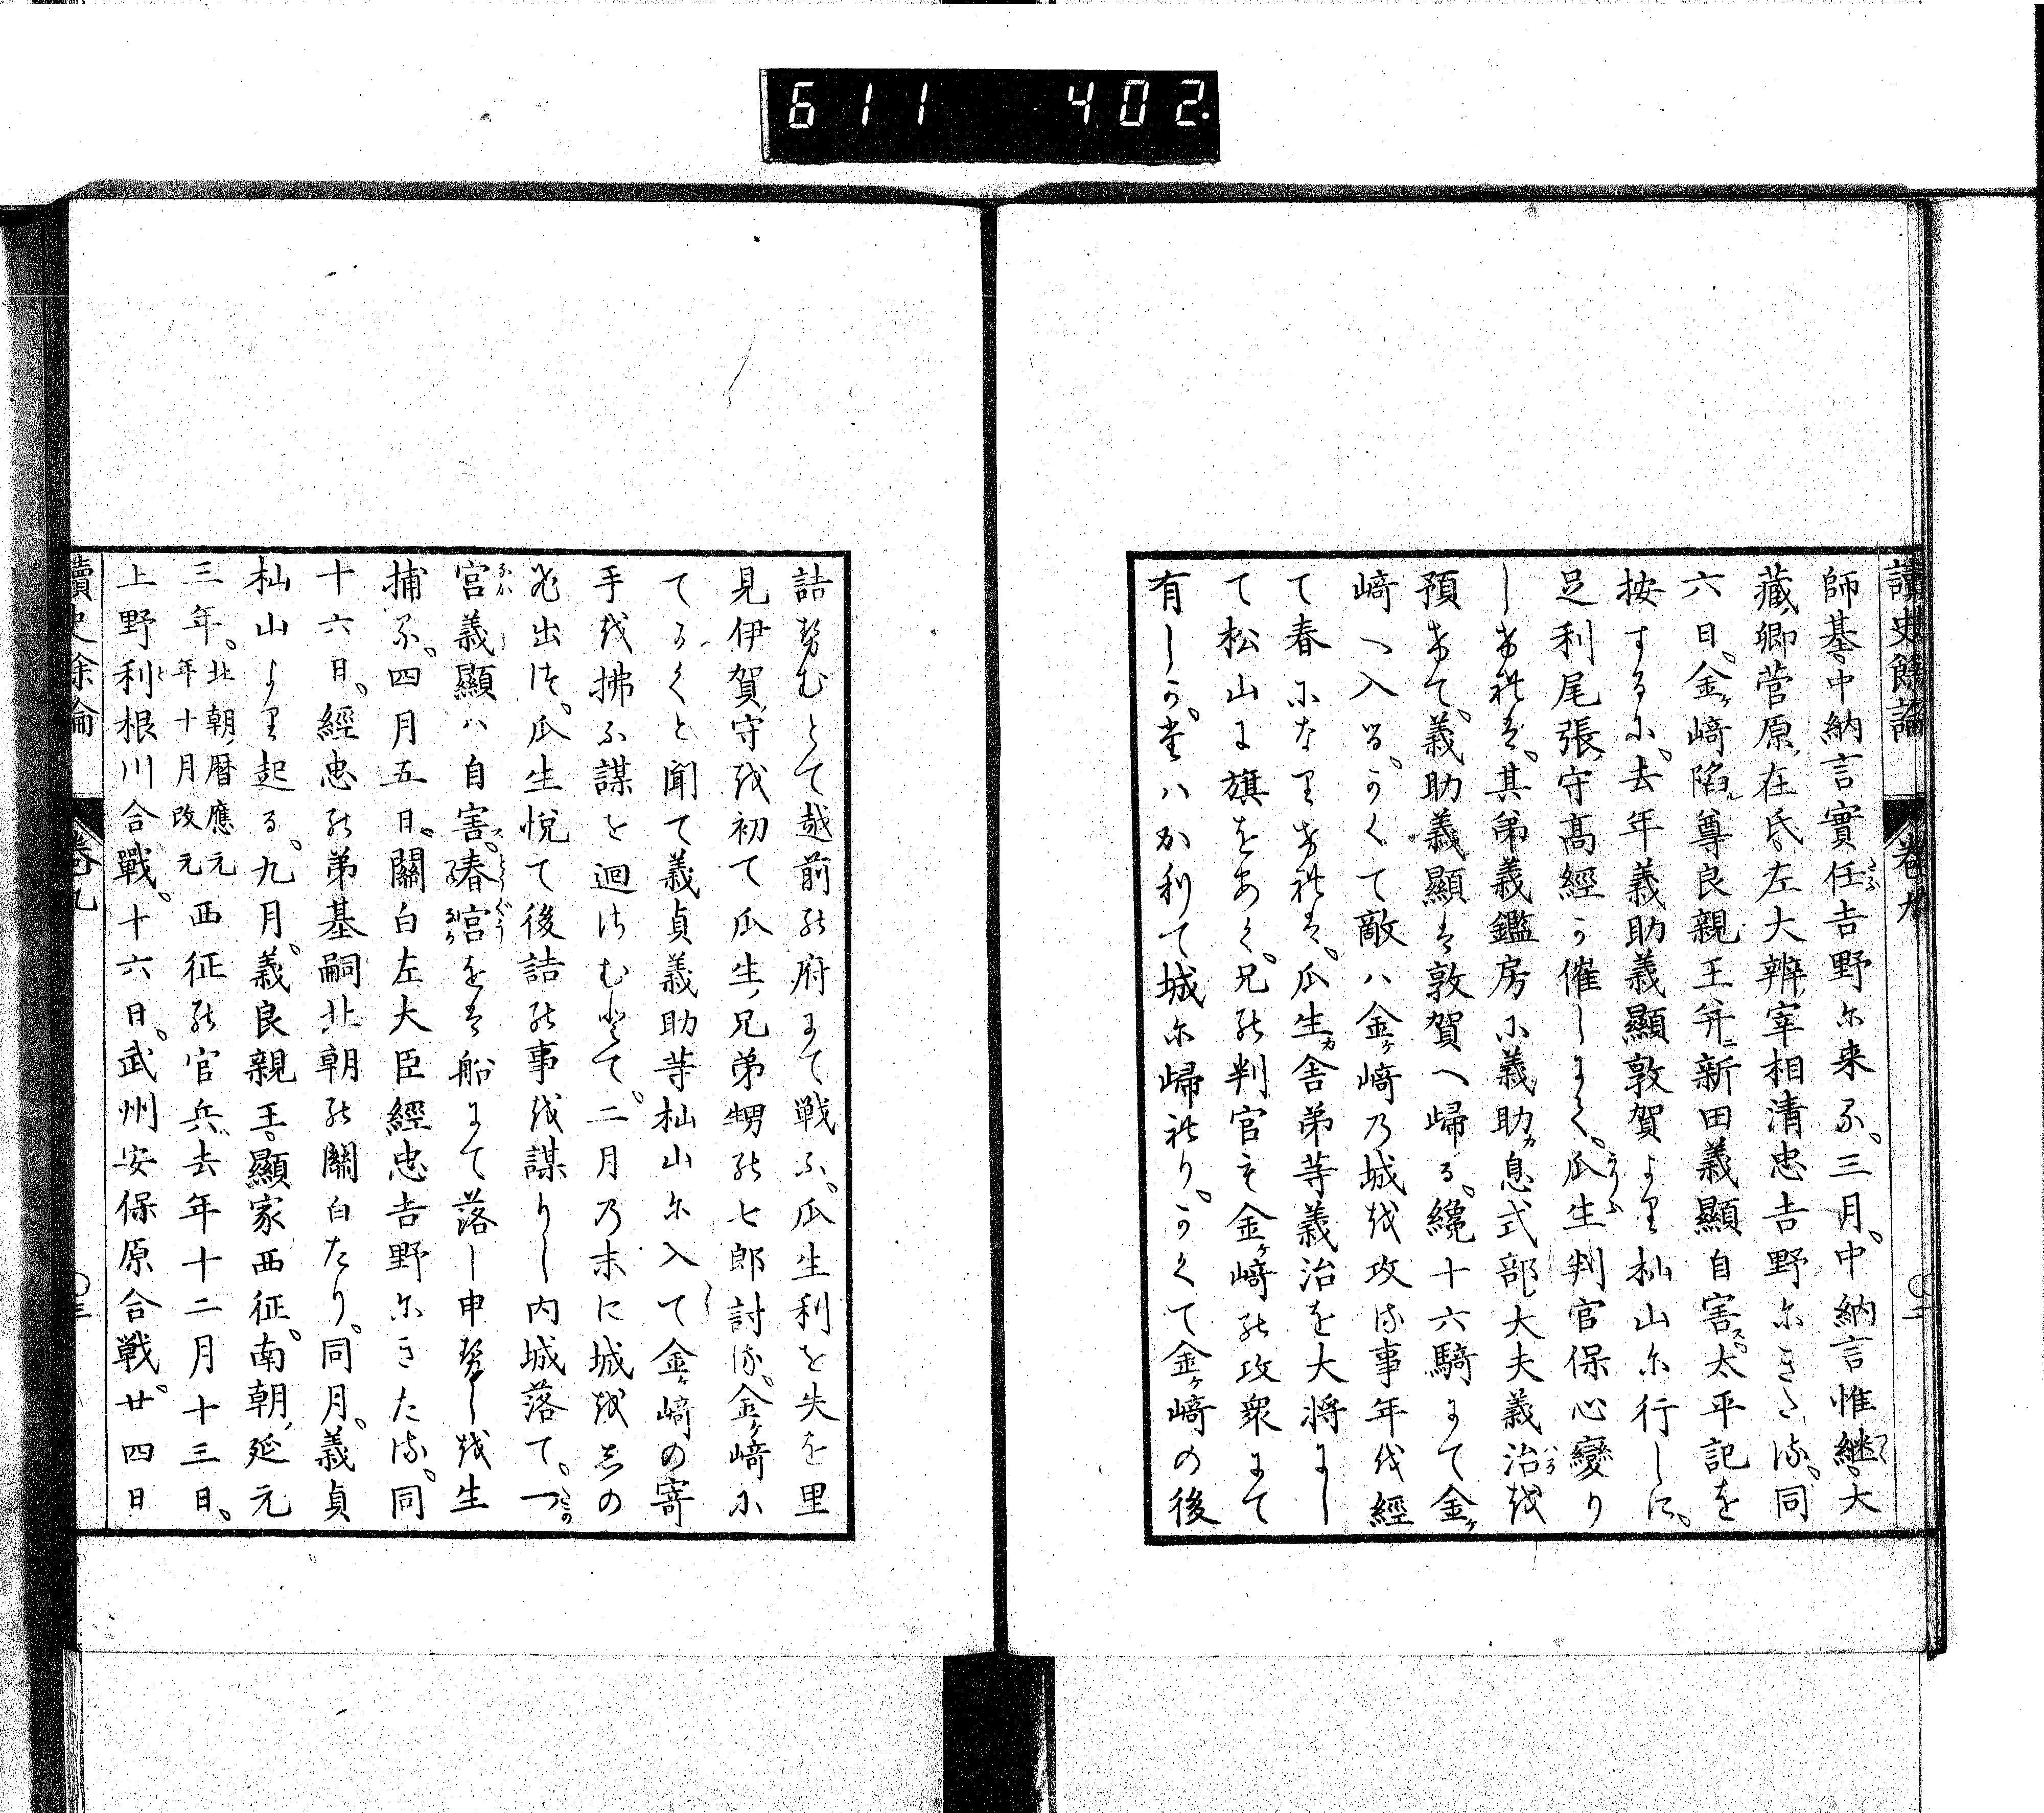 611 402.
讀史餘論 卷九
師基。中納言實任吉野尓来る。三月。中納言惟継。大
藏卿菅原在氏。左大辨宰相清忠吉野尓きたる。同
六日。金ヶ﨑陷ル尊良親王并ニ新田義顯自害ス。太平記を
按するに。去年義助義顯敦賀より杣山尓行しに。
足利尾張守髙經か催しにて。瓜生判官保心變り
しけれは。其弟義鑑房に義助カ息式部大夫義治を
預けて。義助義顯は敦賀へ歸る。纔十六騎にて金ヶ
﨑へ入る。かくて敵ハ金ヶ﨑乃城を攻る事年を經
て春になりけれは。瓜生カ舎弟等義治を大将にし
て松山に旗をあく。兄の判官も金ヶ﨑の攻衆にて
有しか。是ハかりて城尓歸れり。かくて金ヶ﨑の後
詰せむとて越前の府にて戦ふ。瓜生利を失を里
見伊賀守を初て瓜生兄弟甥の七郎討る。金ヶ﨑に
てかくと聞て義貞義助等杣山尓入て金ヶ﨑の寄
手を拂ふ謀を廻せむとて。二月乃末に城をしの
ひ出つ。瓜生悦て後詰の事を謀りし内城落て。一
宮義顯ハ自害ス。春宮をは船にて落し申せしを生
捕る。四月五日。關白左大臣經忠吉野尓きたる。同
十六日。經忠の弟基嗣北朝の關白たり。同月。義貞
杣山より起る。九月。義良親王。顯家西征。南朝延元
三年。北朝暦應元年十月改元 西征の官兵去年十二月十三日。
上野利根川合戰。十六日。武州安保原合戦。廿四日
讀史餘論 卷九